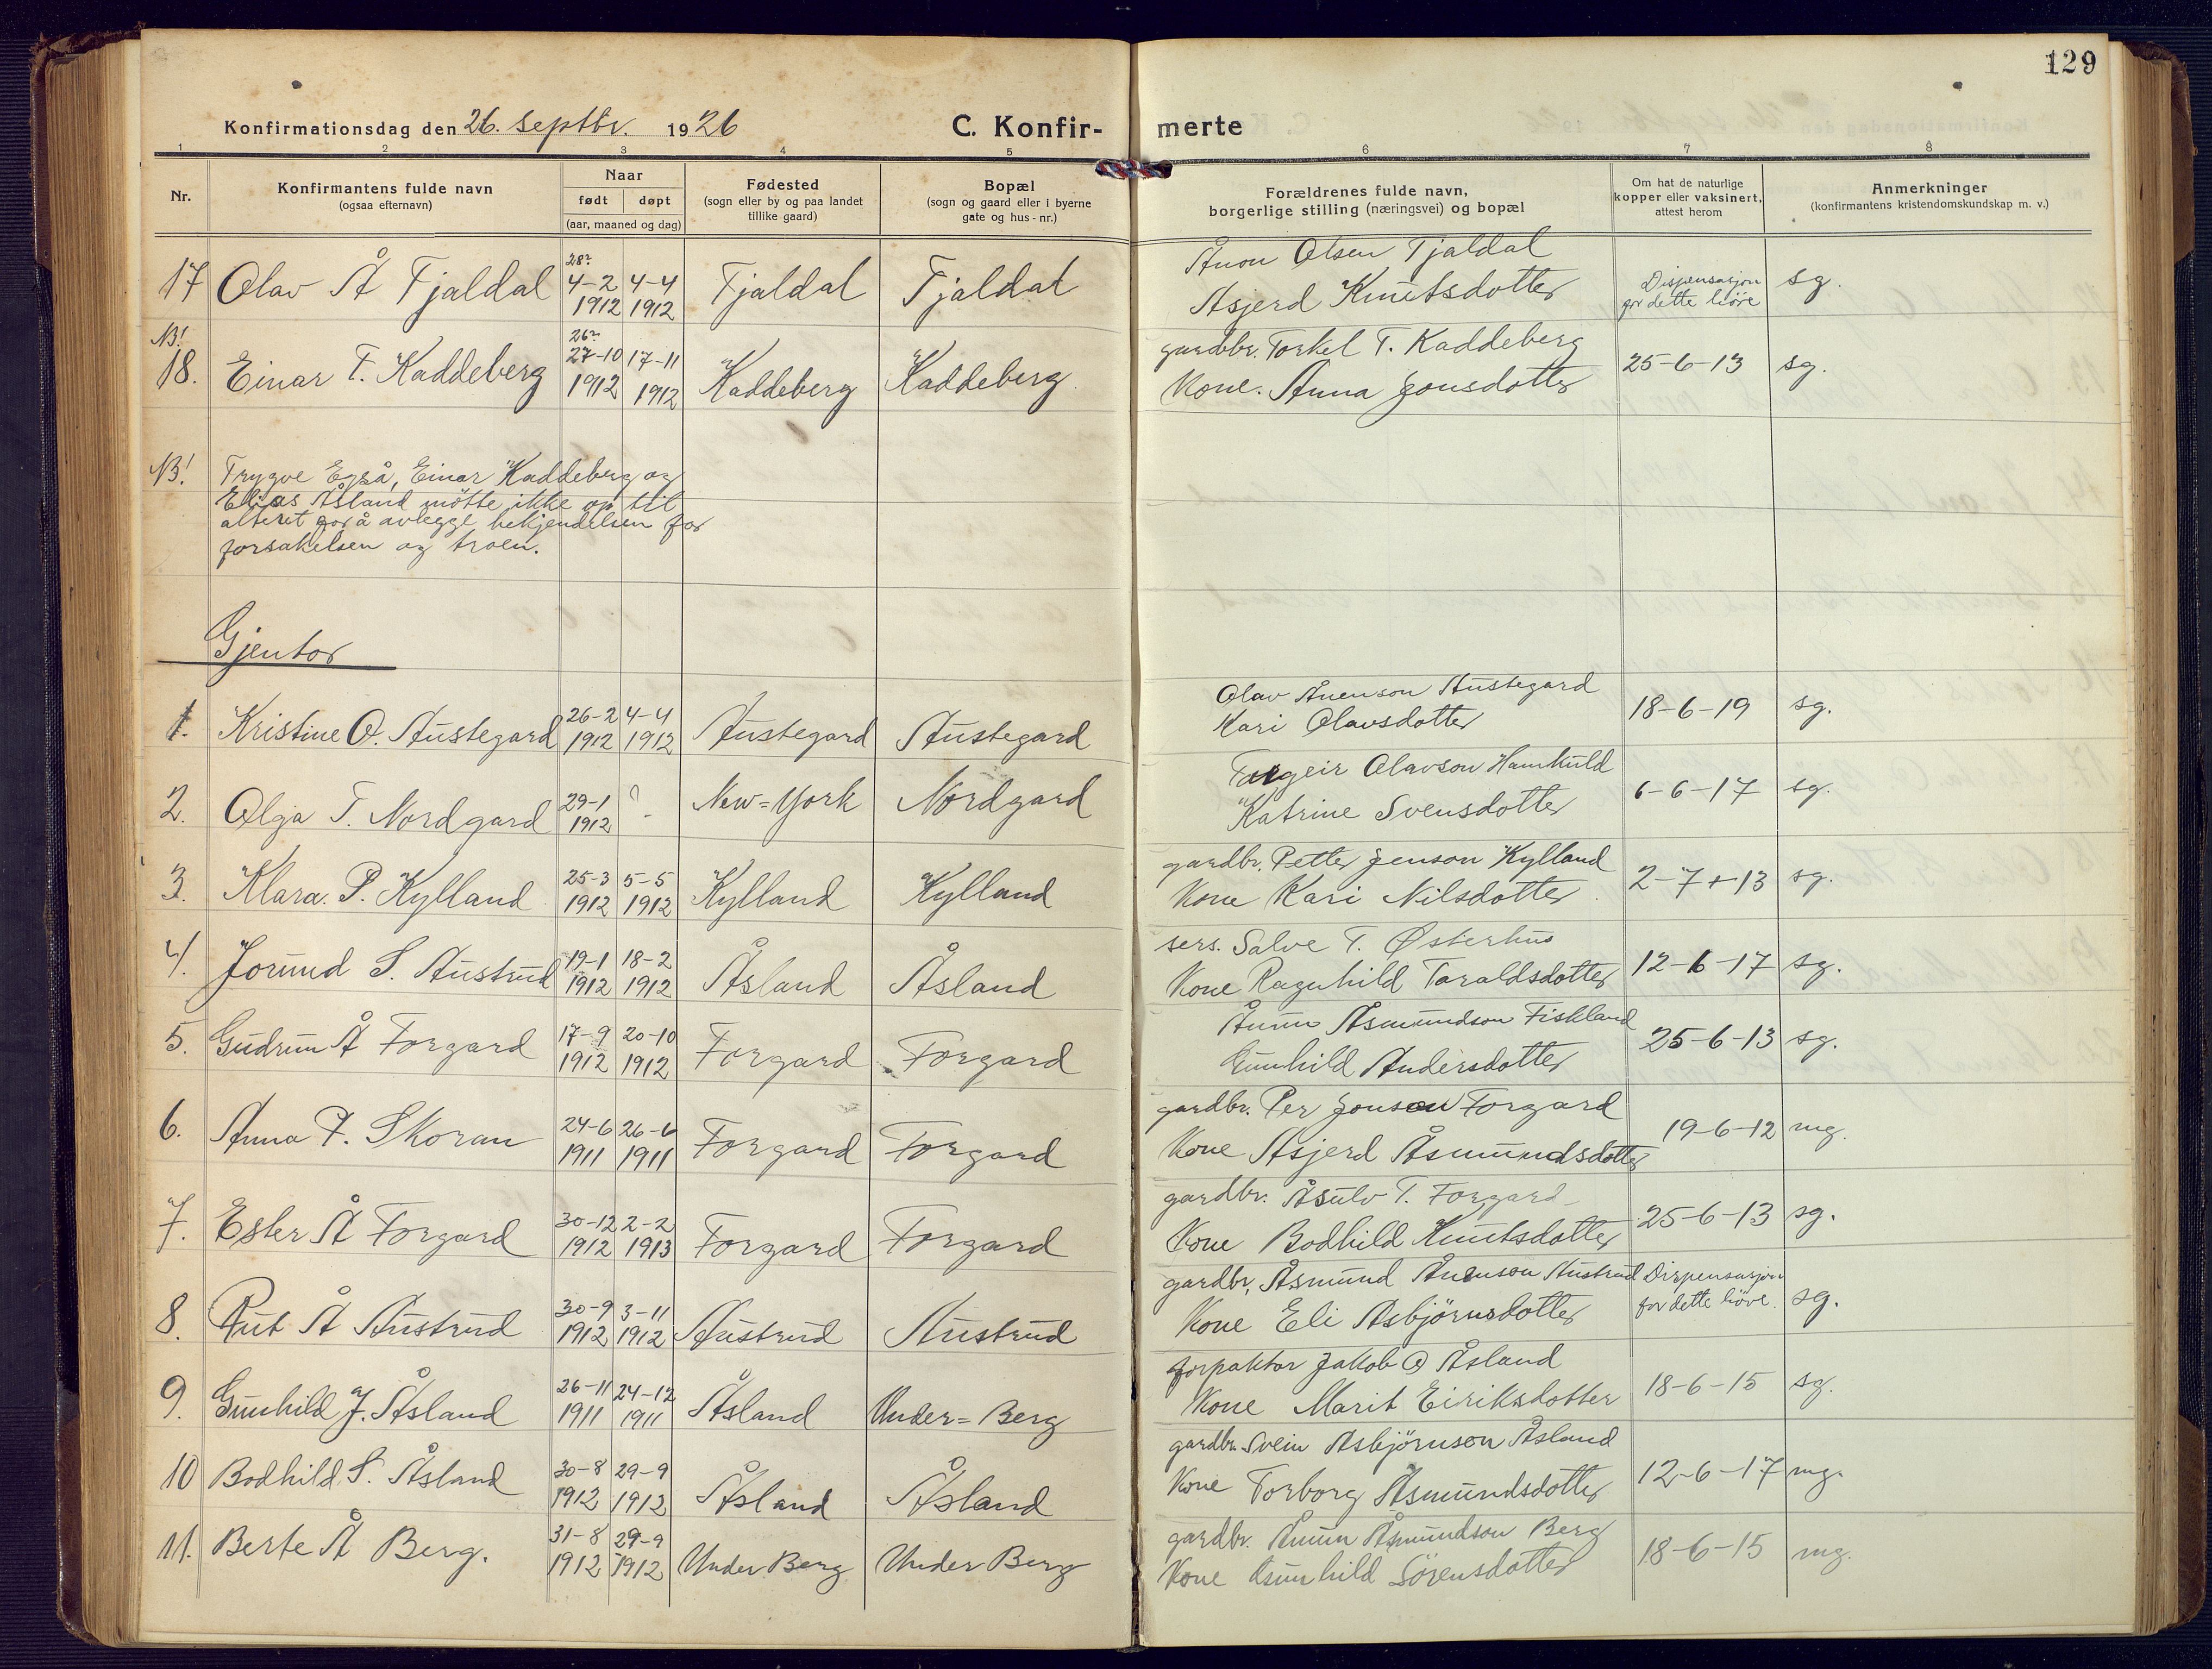 129
Konfirmationsdag den 26. septbr. 1926
C. Konfir- merte
1 2 3 4 5 6 7 8
Nr.
Konfirmantens fulde navn
(ogsaa efternavn)
Naar
født døpt
(aar, maaned og dag)
Fødested
(sogn eller by og paa landet
tillike gaard)
Bopæl
(sogn og gaard eller i byerne
gate og hus - nr.)
Forældrenes fulde navn,
borgerlige stilling (næringsvei) og bopæl
Om hat de naturlige
kopper eller vaksinert,
attest herom
Anmerkninger
(konfirmantens kristendomskundskap m. v.)
17 Olav Å Tjaldal 28? 4-2 1912 4-4 1912 Tjaldal Tjaldal Ånon Olsen Tjaldal
Asjerd Knutsdotter Dispensasjon for dette høve sg.
NB!
18. Einar T. Kaddeberg 26? 27-10 1912 17-11 1912 Kaddeberg Kaddeberg. gardbr. Torkel T. Kaddeberg
Kone. Anna Jonsdotter 25-6-13 sg.
NB! Trygve Egså, Einar Kaddeberg og
Elias Åsland møtte ikke op til
alteret for å avlegge bekjendelsen for
forsakelsen og troen.
Gjentor
1. Kristine O. Austegard 26-2 1912 4-4 1912 Austegard Austegard Olav Ånenson Austegard
Kari Olavsdotter 18-6-19 sg.
2. Olga T. Nordgard 29-1 1912 ? - New=York Nordgard Targeir Olavson Hamkuld
Katrine Svensdotter 6-6-17 sg.
3. Klara. P. Kylland 25-3 1912 5-5 1912 Kylland Kylland gardbr. Petter Jenson Kylland
Kone Kari Nilsdotter 2-7-13 sg.
4. Jorund S. Austrud 19-1 1912 18-2 1912 Åsland Åsland sers. Salve T. Østerhus
Kone Ragnhild Taraldsdotter 12-6-17 sg.
5. Gudrun Å Forgard 17-9 1912 20-10 1912 Forgard Forgard Ånun Åsmundson Fiskland
Gunhild Andersdotter 25-6-13 sg.
6. Anna P. Skoran 24-6 1911 26-6 1911 Forgard Forgard gardbr. Per Jonson Forgard
Kone Asjerd Åsmundsdotter 19-6-12 mg.
7. Ester Å Forgard 30-12 1912 2-2 1913 Forgard Forgard gardbr. Åsulv T. Forgard
Kone Bodhild Knutsdotter 25-6-13 sg.
8. Rut Å Austrud 30-9 1912 3-11 1912 Austrud Austrud gardbr. Åsmund Ånenson Austrud
Kone Eli Asbjørnsdotter Dispensasjon for dette høve. sg.
9. Gunhild J. Åsland 26-11 1911 24-12 1911 Åsland Under=Berg forpaktar Jakob O Åsland
Kone Marit Eiriksdotter 18-6-15 sg.
10 Bodhild S. Åsland 30-8 1912 29-9 1912 Åsland Åsland gardbr. Svein Asbjørnson Åsland
Kone Torborg Åsmundsdotter 12-6-17 mg.
11. Berte Å Berg. 31-8 1912 29-9 1912 Under Berg Under Berg gardbr. Ånun Åsmundson Berg
Kone Gunhild Sørensdotter 18-6-15 mg.